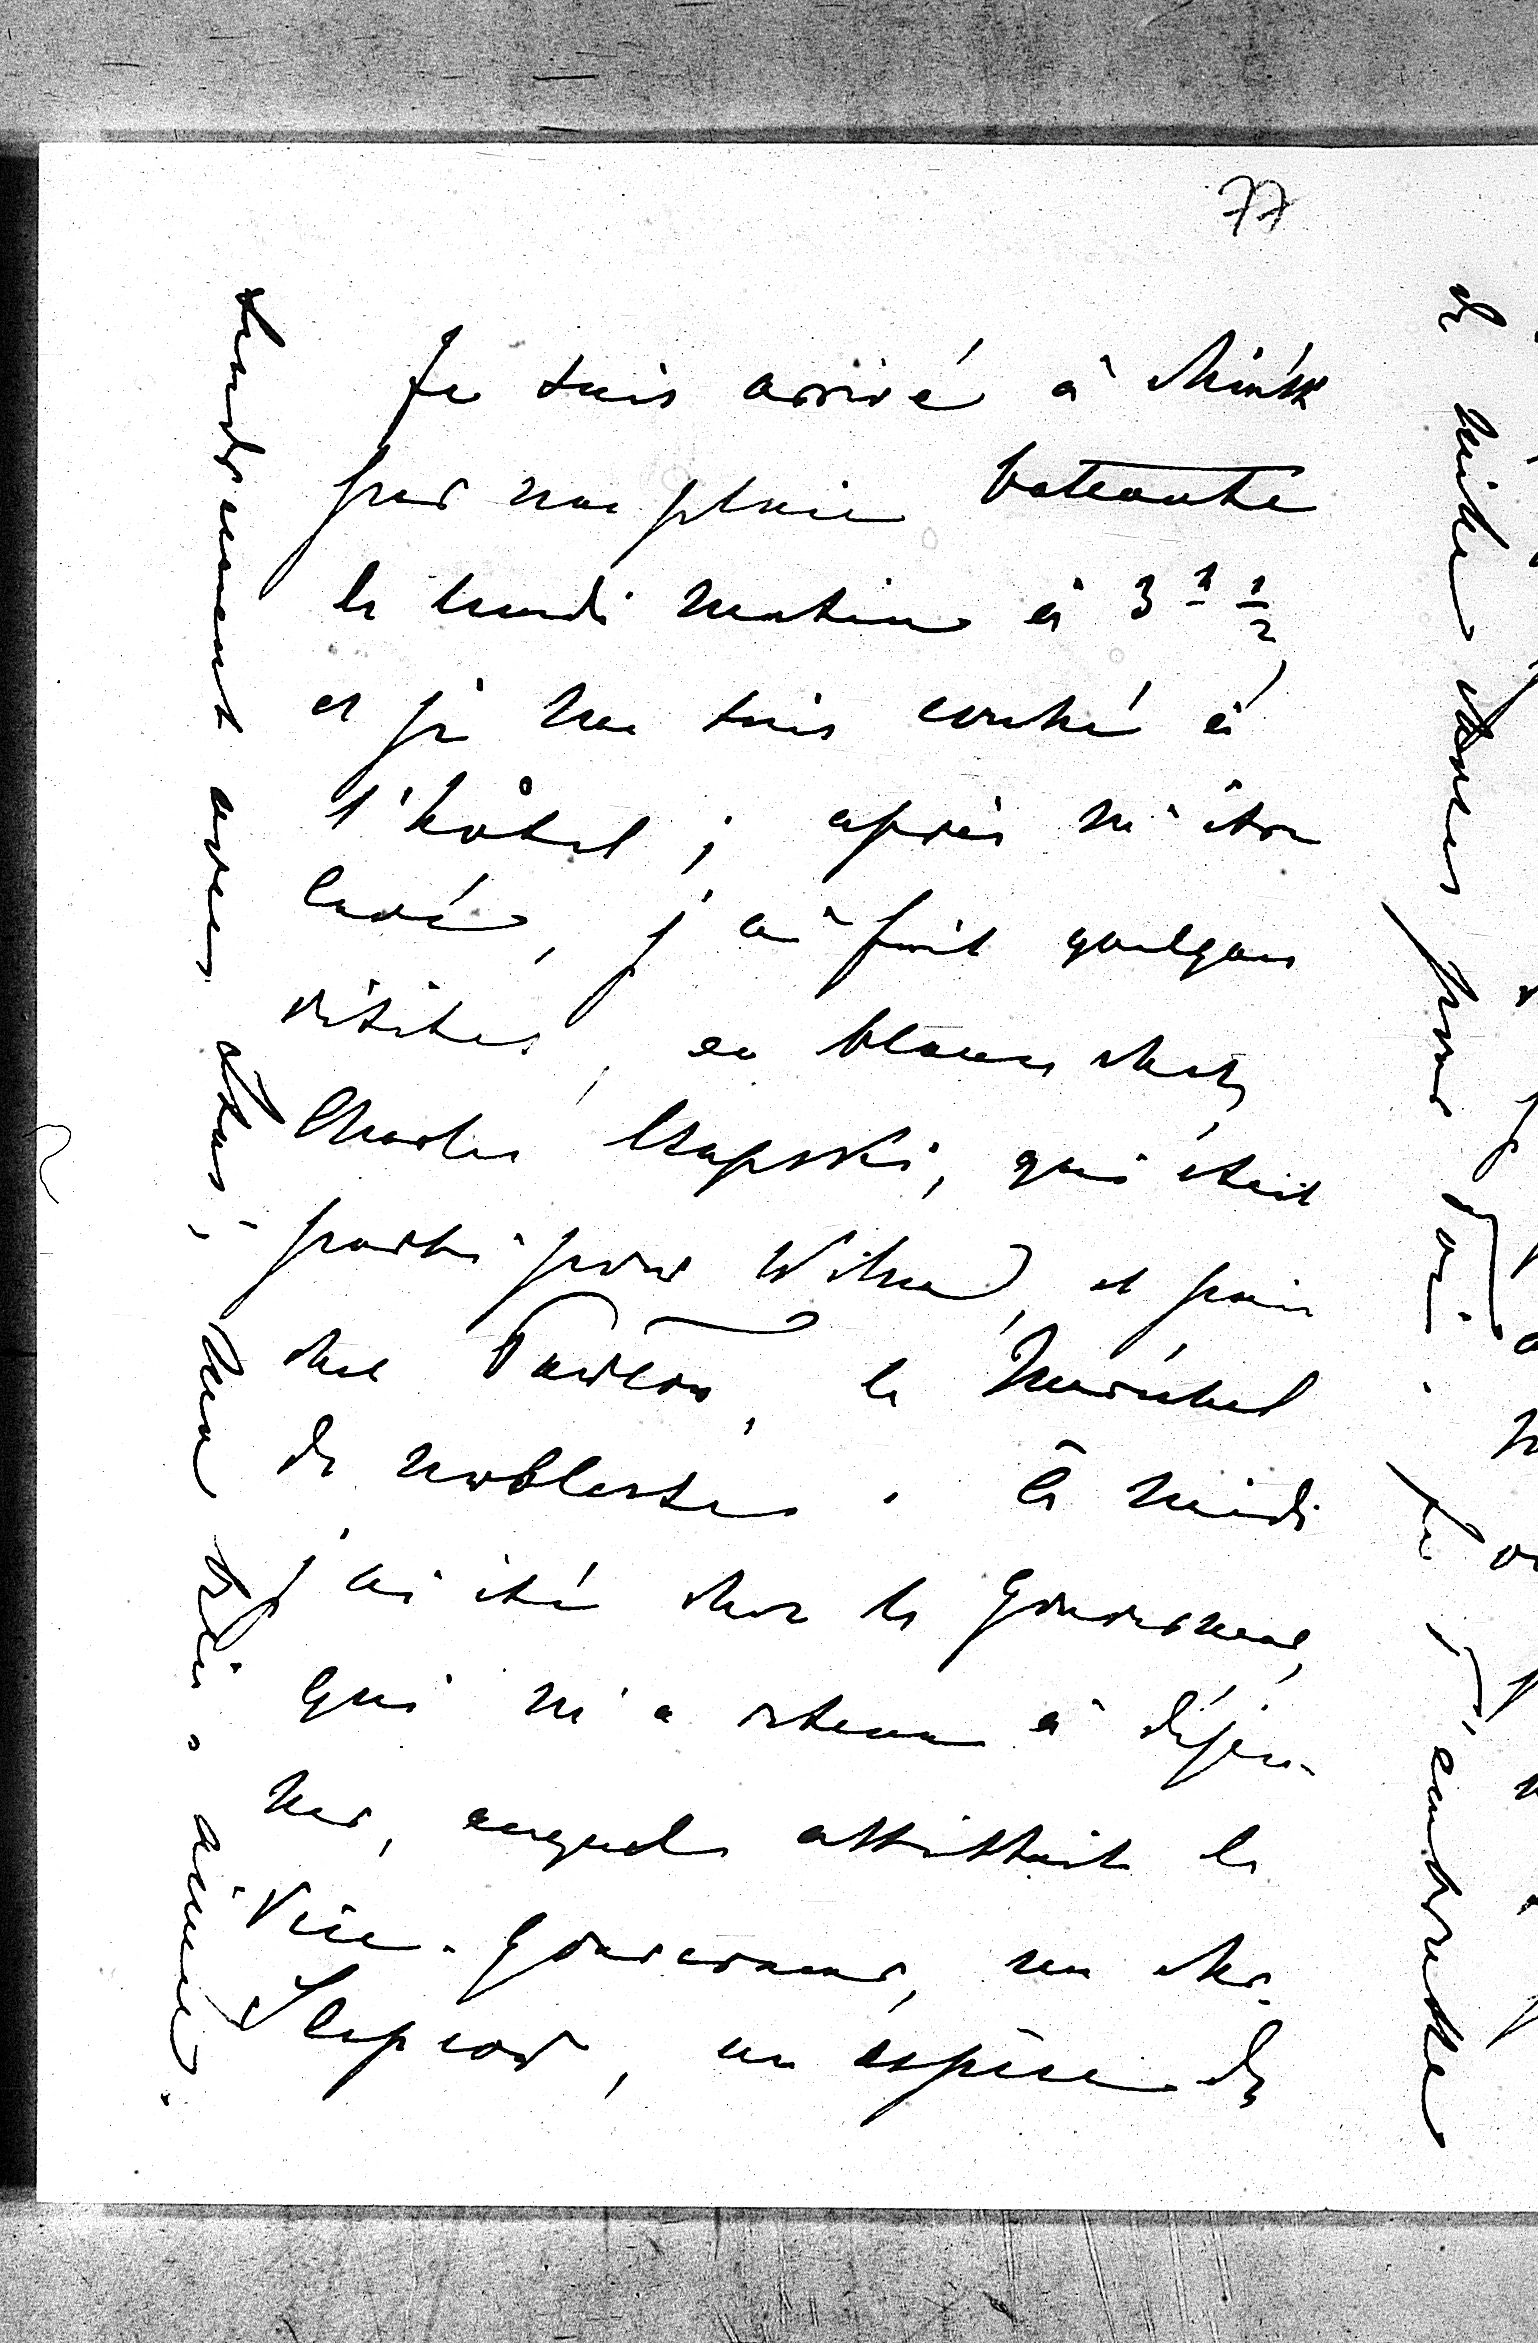 77
Je suis arrivé à Minsk
par une pluie battante
le lundi matin à 3 h 1/2,
et je me suis couché à
l'hôtel ; après m'être
lavé, j'ai fait quelques
visites, en blanc chez
Charles Czapski, qui était
parti pour Wilna, et puis
chez Pawlow, le Maréchal
de noblesse. À midi
j'ai été chez le Gouverneur,
qui m'a retenu à déjeu-
ner, auquel assistait le
Vice-Gouverneur, un Mr.
Slepzow, un espèce de
tendrement avec
ma très aimée.
de mille
pour toi. Je t'embrasse